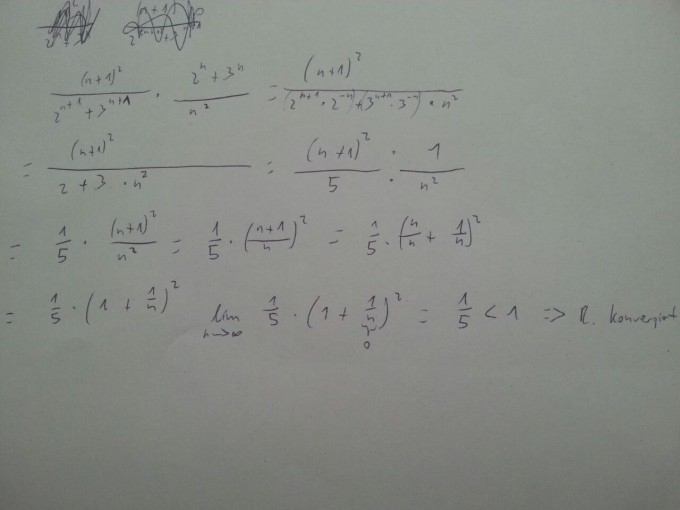 (n+1)² / (2ⁿ⁺¹ + 3ⁿ⁺¹) · (2ⁿ + 3ⁿ) / n² = (n+1)² / ((2ⁿ⁺¹ · 2⁻ⁿ) + (3ⁿ⁺¹ · 3⁻ⁿ) · n²)
= (n+1)² / (2 + 3 · n²) = (n+1)² / 5 · 1 / n²
= 1/5 · (n+1)² / n² = 1/5 · ((n+1)/n)² = 1/5 · (n/n + 1/n)²
= 1/5 · (1 + 1/n)² lim n→∞ 1/5 · (1 + 1/n)² = 1/5 < 1 => R. konvergiert
0